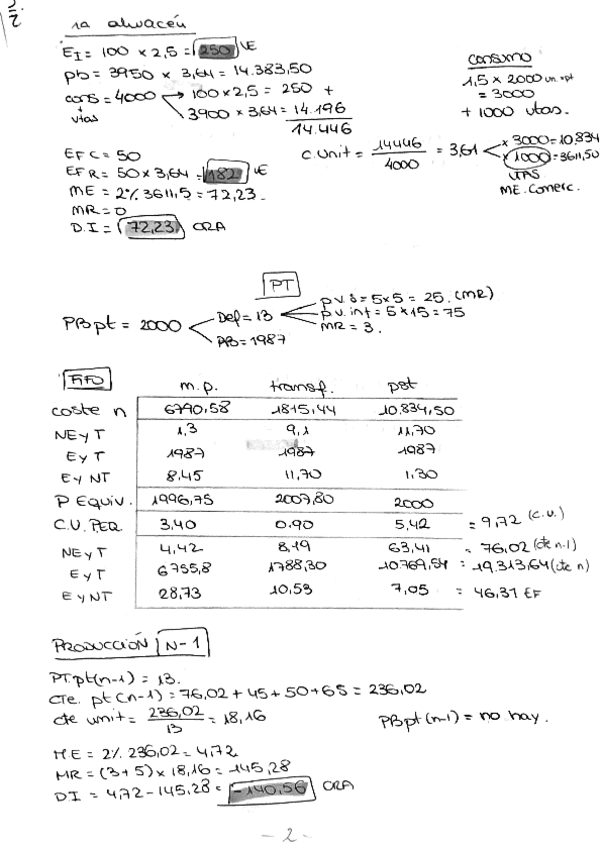 2/2
1a almacén
EI = 100 × 2,5 = 250 UE
pb = 3950 × 3,64 = 14.383,50
cons = 4000 → 100 × 2,5 = 250 +
+ vtas 3900 × 3,64 = 14.196
14.446
consumo
1,5 × 2000 un. pt
= 3000
+ 1000 vtas.
C. Unit = 14446 / 4000 = 3,61 × 3000 = 10,834
× 1000 = 3611,50
VTAS
ME. Comerc.
EFC = 50
EFR = 50 × 3,64 = 182 UE
ME = 2% 3611,5 = 72,23.
MR = 0
D.I = 72,23 CRA
PT
PBpt = 2000
Def = 13
PB = 1987
p.v. s = 5 × 5 = 25. (MR)
p.v. int = 5 × 15 = 75
MR = 3.
FIFO
m.p. transf. pst
coste n 6790,58 1815,44 10.834,50
NE y T 1,3 9,1 11,70
E y T 1987 1987 1987
E y NT 8,45 11,70 1,30
P EQUIV. 1996,75 2007,80 2000
C.U. PEQ 3,40 0,90 5,42 = 9,72 (c.u.)
NE y T 4,42 8,19 63,41 = 76,02 (cte n-1)
E y T 6755,8 1788,30 10769,54 = 19.313,64 (cte n)
E y NT 28,73 10,53 7,05 = 46,31 EF
PRODUCCIÓN N-1
PTpt(n-1) = 13.
cte. pt (n-1) = 76,02 + 45 + 50 + 65 = 236,02
cte unit = 236,02 / 13 = 18,16
PBpt (n-1) = no hay.
ME = 2% 236,02 = 4,72
MR = (3+5) × 18,16 = 145,28
DI = 4,72 - 145,28 = -140,56 CRA
- 2 -